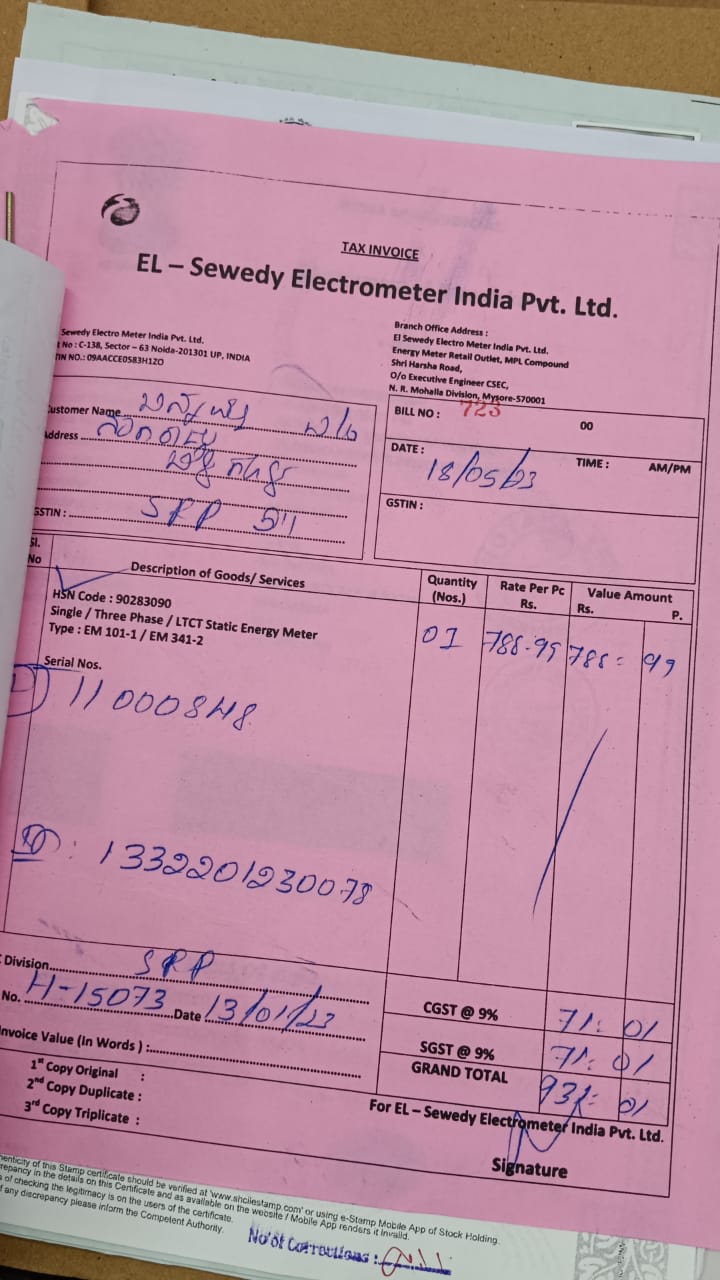 TAX INVOICE
EL – Sewedy Electrometer India Pvt. Ltd.
Sewedy Electro Meter India Pvt. Ltd.
No : C-138, Sector – 63 Noida-201301 UP, INDIA
NO.: 09AACCE0583H1ZO
Branch Office Address :
El Sewedy Electro Meter India Pvt. Ltd.
Energy Meter Retail Outlet, MPL Compound
Shri Harsha Road,
O/o Executive Engineer CSEC,
N. R. Mohalla Division, Mysore-570001
Customer Name
Address
GSTIN : SRP
BILL NO : 723 00
DATE : 18/05/23 TIME : AM/PM
GSTIN :
Sl. No Description of Goods/ Services Quantity (Nos.) Rate Per Pc Rs. Value Amount Rs. P.
HSN Code : 90283090
Single / Three Phase / LTCT Static Energy Meter
Type : EM 101-1 / EM 341-2
01 788.99 788 = 99
Serial Nos.
11000848
: 1332201230078
Division SRP
No. H-15073 Date 13/01/23
Invoice Value (In Words ) :
CGST @ 9% 71: 01
SGST @ 9% 71: 01
GRAND TOTAL 931= 01
1st Copy Original :
2nd Copy Duplicate :
3rd Copy Triplicate :
For EL – Sewedy Electrometer India Pvt. Ltd.
Signature
of this Stamp certificate should be verified at 'www.shcilestamp.com' or using e-Stamp Mobile App of Stock Holding.
in the details on this Certificate and as available on the website / Mobile App renders it invalid.
of checking the legitimacy is on the users of the certificate.
any discrepancy please inform the Competent Authority.
No of Corrections :